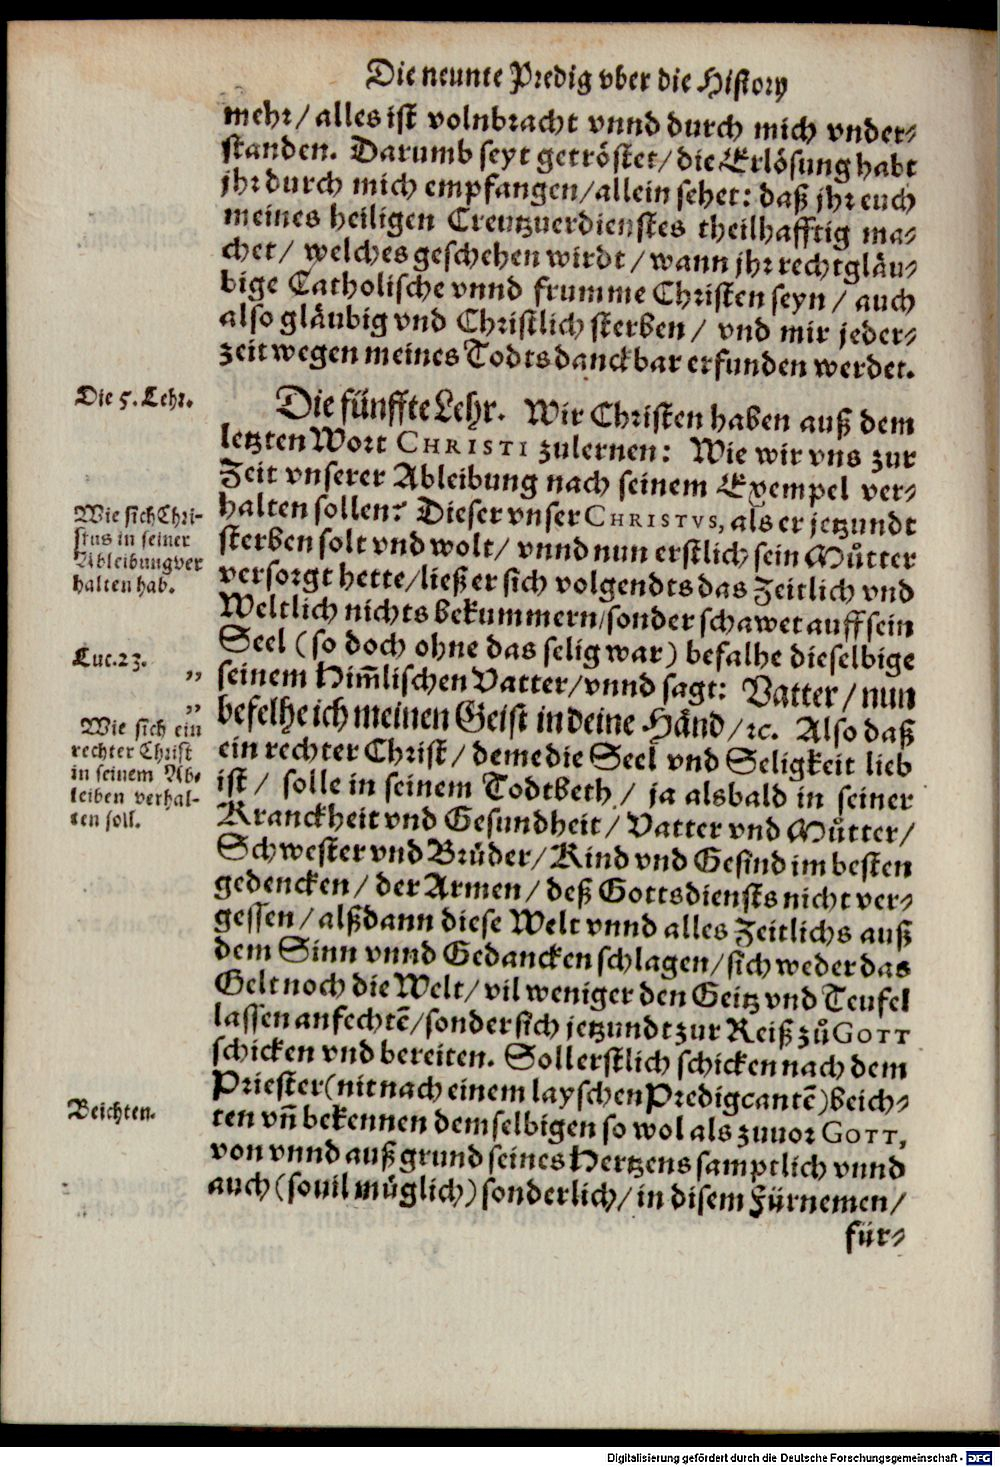 Die neunte Predig vber die History
mehr / alles ist volnbracht vnnd durch mich vnder-
standen. Darumb seyt getröstet / die Erlösung habt
jhr durch mich empfangen / allein sehet: daß jhr euch
meines heiligen Creutzuerdienstes theilhafftig ma-
chet / welches geschehen wirdt / wann jhr rechtgläu-
bige Catholische vnnd frumme Christen seyn / auch
also gläubig vnd Christlich sterben / vnd mir jeder-
zeit wegen meines Todts danckbar erfunden werdet.
Die 5. Lehr.
Die fünffte Lehr. Wir Christen haben auß dem
letzten Wort CHRISTI zulernen: Wie wir vns zur
Zeit vnserer Ableibung nach seinem Exempel ver-
halten sollen? Dieser vnser CHRISTVS, als er jetzundt
Wie sich Chri-
stus in seiner
Ableibung ver
halten hab.
sterben solt vnd wolt / vnnd nun erstlich sein Můtter
versorgt hette / ließ er sich volgendts das Zeitlich vnd
Weltlich nichts bekummern / sonder schawet auff sein
Seel (so doch ohne das selig war) befalhe dieselbige
Luc. 23.
„ seinem Him̄lischen Vatter / vnnd sagt: Vatter / nun
„ befelhe ich meinen Geist in deine Händ / ꝛc. Also daß
Wie sich ein
rechter Christ
in seinem Ab-
leiben verhal-
ten soll.
ein rechter Christ / deme die Seel vnd Seligkeit lieb
ist / solle in seinem Todtbeth / ja alsbald in seiner
Kranckheit vnd Gesundheit / Vatter vnd Můtter /
Schwester vnd Brůder / Kind vnd Gesind im besten
gedencken / der Armen / deß Gottsdiensts nicht ver-
gessen / alßdann diese Welt vnnd alles Zeitlichs auß
dem Sinn vnnd Gedancken schlagen / sich weder das
Gelt noch die Welt / vil weniger den Geitz vnd Teufel
lassen anfechtē / sonder sich jetzundt zur Reiß zů GOTT
schicken vnd bereiten. Soll erstlich schicken nach dem
Priester (nit nach einem layschen Predigcantē) beich-
Beichten.
ten vn̄ bekennen demselbigen so wol als zuuor GOTT,
von vnnd auß grund seines Hertzens samptlich vnnd
auch (souil müglich) sonderlich / in disem Fürnemen /
für-
Digitalisierung gefördert durch die Deutsche Forschungsgemeinschaft - DFG